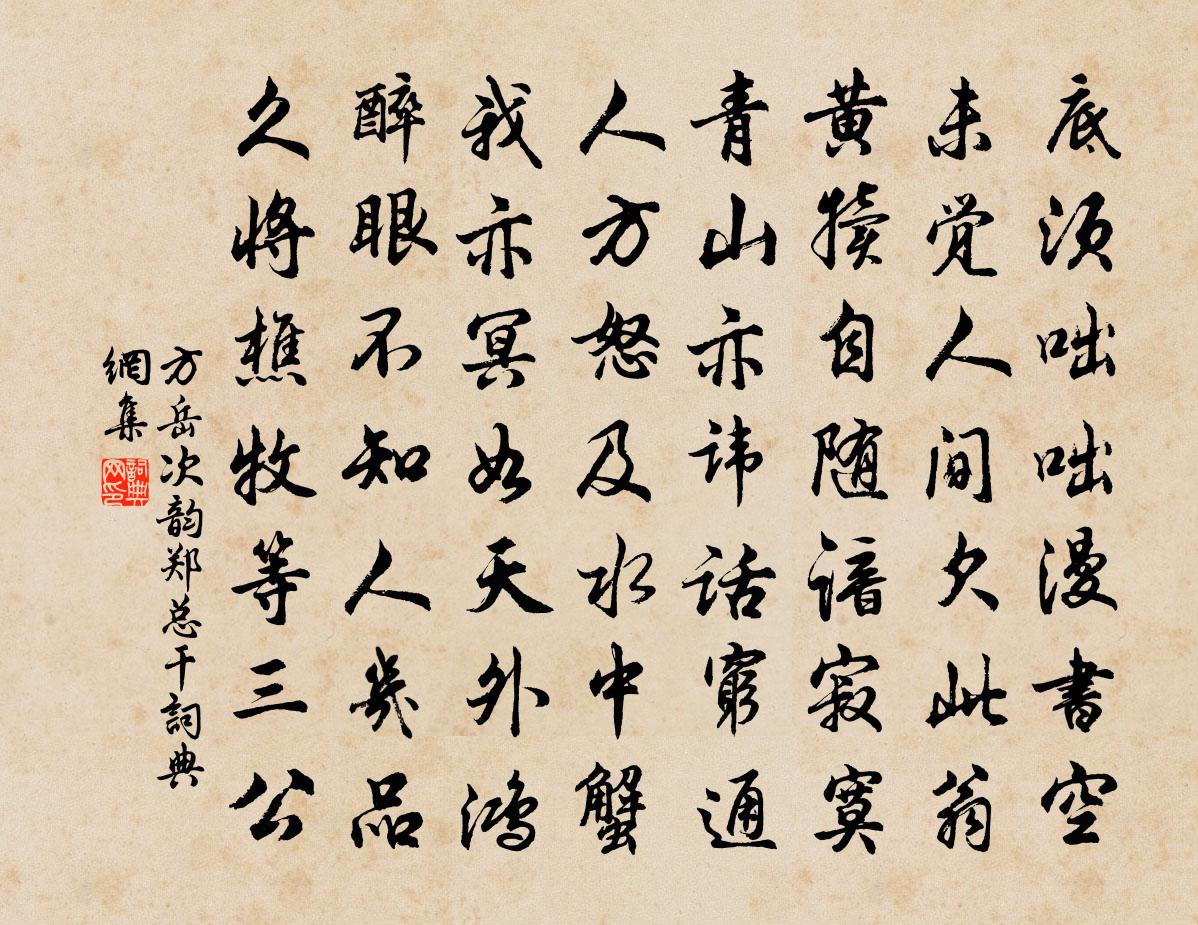 底须咄咄漫書空
未觉人间欠此翁
黄犊自随谙寂寞
青山亦讳话窮通
人方怒及水中蟹
我亦冥如天外鸿
醉眼不知人幾品
久将樵牧等三公
方岳次韵郑总干詞典
網集
詞典网印